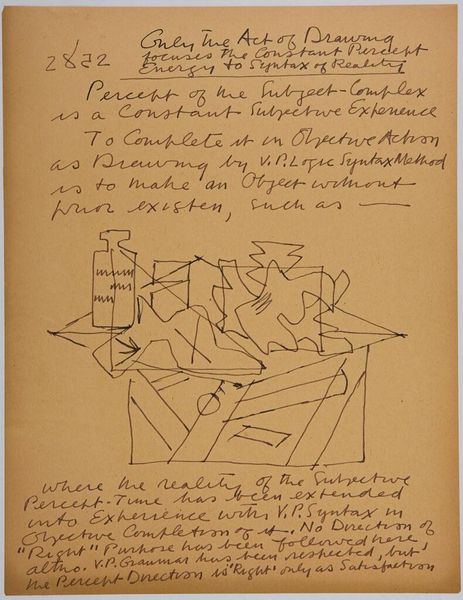 Only the Act of Drawing
focuses the Constant Percept
Energy to Syntax of Reality
Percept of the Subject-Complex
is a Constant Subjective Experience
To Complete it in Objective Action
as Drawing by V.P. Logic Syntax Method
is to make an Object without
prior existen, such as —
where the reality of the Subjective
Percept-Time has been extended
into Experience with V.P. Syntax in
Objective Completion of it —. No Direction of
"Right" Purpose has been followed here,
altho. V.P. Grammar has been respected, but
the Percept Direction is "Right" only as Satisfaction